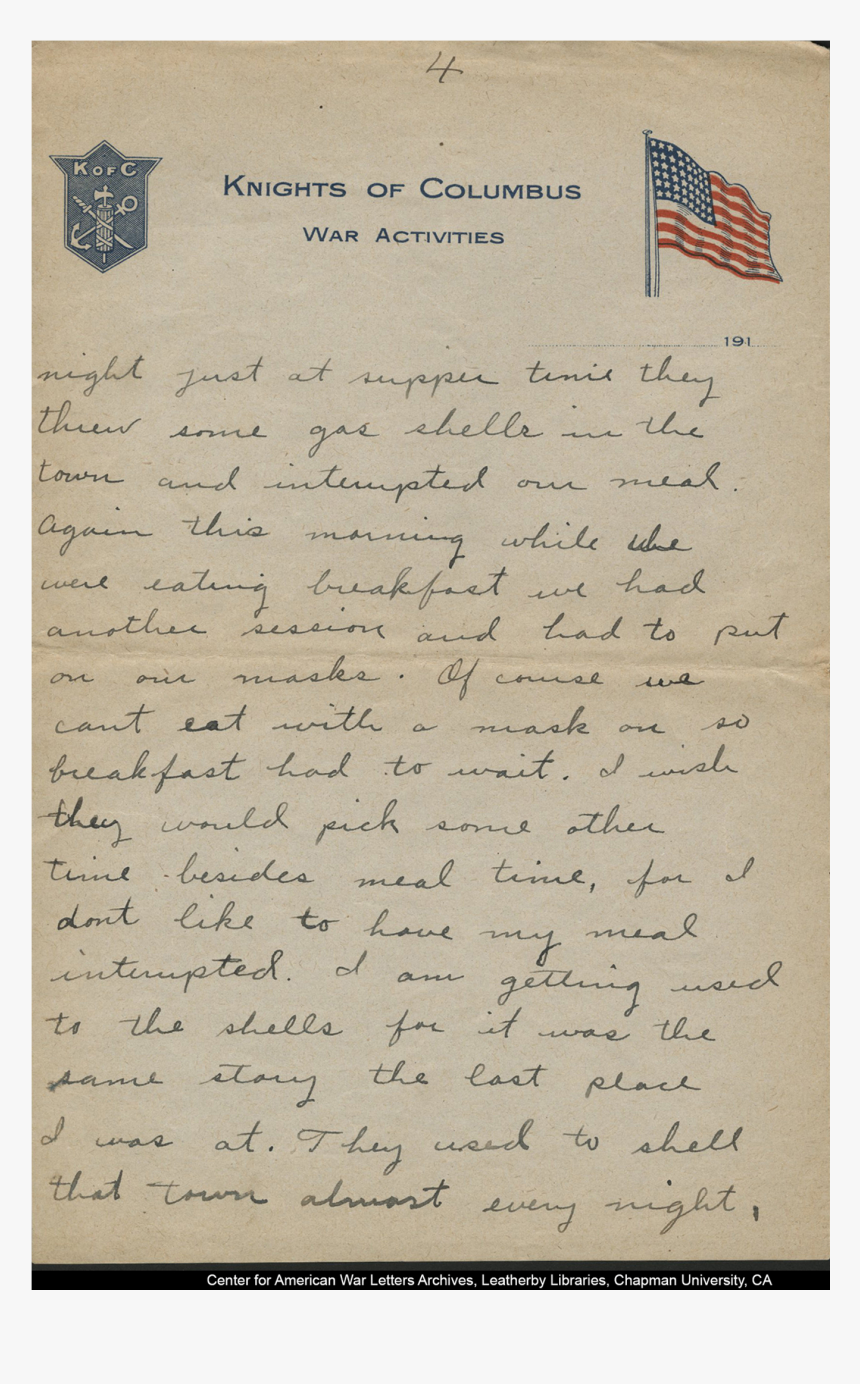 4
K OF C
KNIGHTS OF COLUMBUS
WAR ACTIVITIES
191
night just at supper time they
threw some gas shells in the
town and interrupted our meal.
Again this morning while we
were eating breakfast we had
another session and had to put
on our masks. Of course we
cant eat with a mask on so
breakfast had to wait. I wish
they would pick some other
time besides meal time, for I
dont like to have my meal
interrupted. I am getting used
to the shells for it was the
same story the last place
I was at. They used to shell
that town almost every night,
Center for American War Letters Archives, Leatherby Libraries, Chapman University, CA